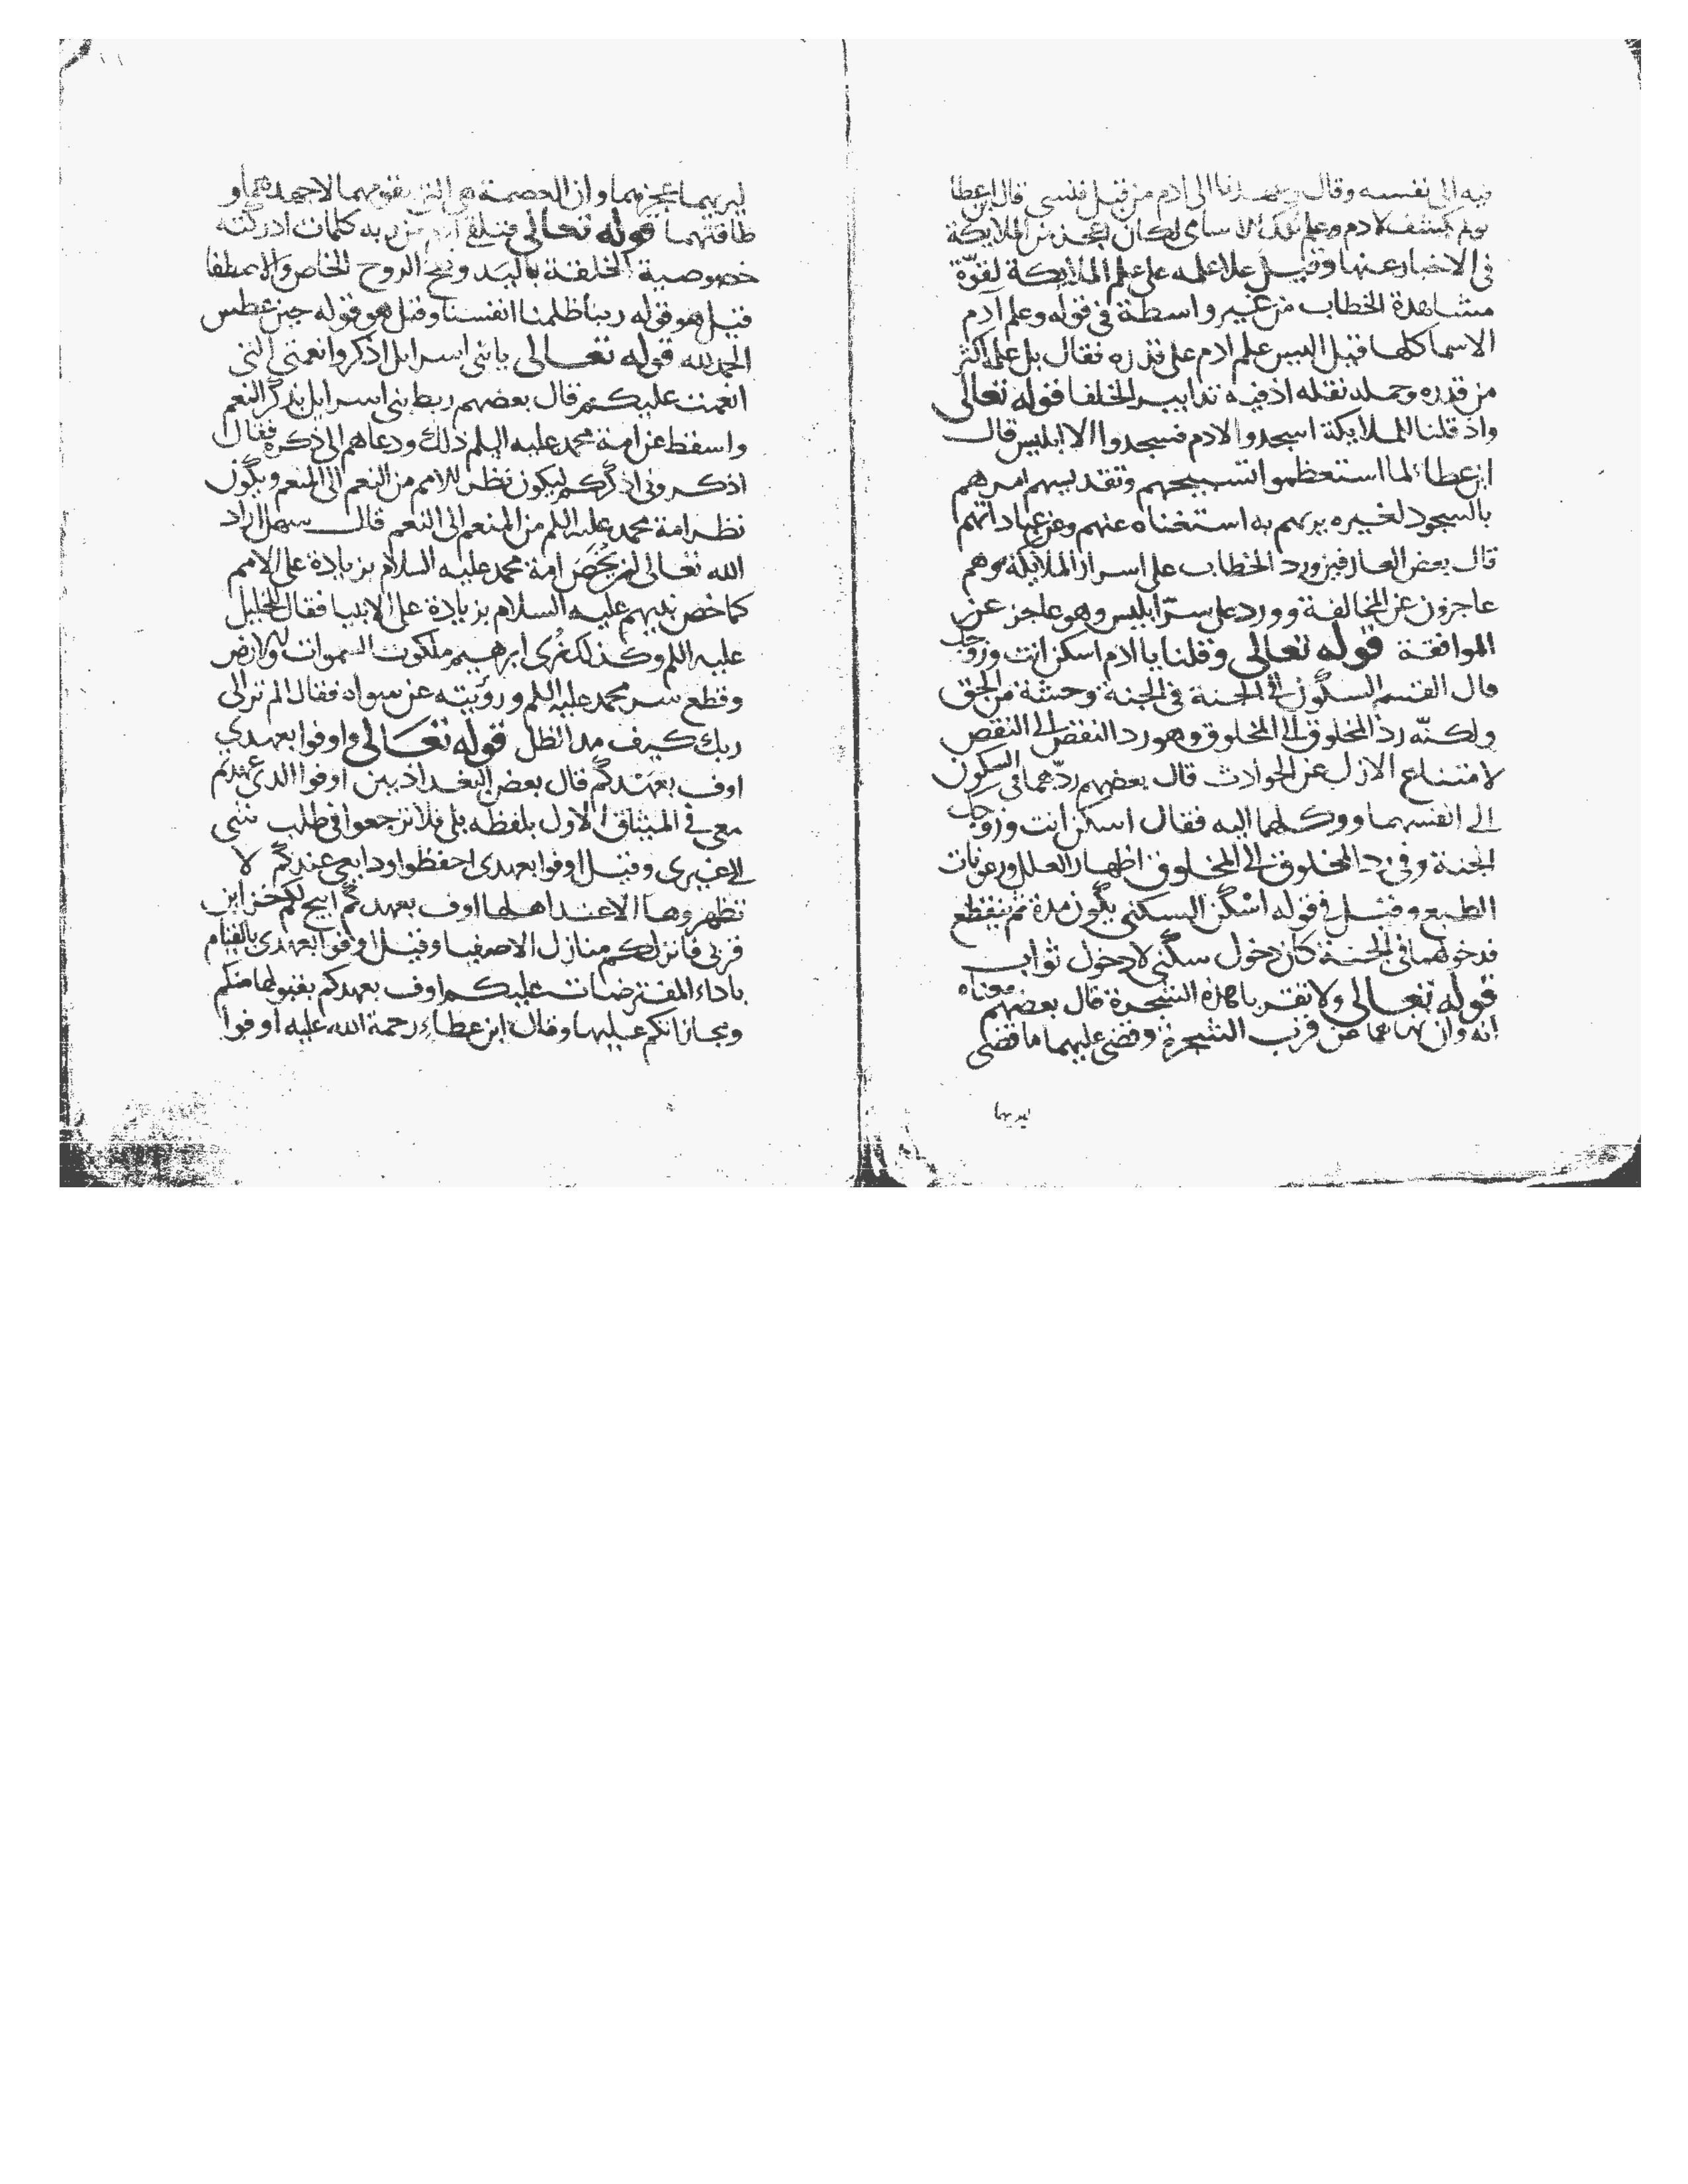 فيه الى نفسه وقال وعهدنا الى ادم من قبل فنسى قال ابن عطا
لو لم يكشف لادم وعلم تلك الاسامى لكان اعجز من الملايكة
فى الاخبار عنها وقيل علا علمه على علم الملايكة لقوّة
مشاهدة الخطاب من غير واسطة فى قوله وعلم ادم
الاسما كلها فقيل اليس علم ادم على قدره فقال بل على اكثر
من قدره وحمله نقله اذ فيه تدابير الخلفا قوله تعالى
واذ قلنا للملايكة اسجدوا لادم فسجدوا الا ابليس قال
ابن عطا لما استعظموا تسبيحهم وتقديسهم امرهم
بالسجود لغيره يريهم به استغناه عنهم وعن عباداتهم
قال بعض العارفين ورد الخطاب على اسرار الملايكة وهم
عاجزون عن المخالفة وورد على سرّ ابليس وهو عاجز عن
الموافقة قوله تعالى وقلنا يا ادم اسكن انت وزوجك
قال القسم السكون الى الجنة فى الجنة وحشة من الحق
ولكنّه ردّ المخلوق الى المخلوق وهو رد النقص الى النقص
لامتناع الازل عن الحوادث قال بعضهم ردّهما فى السكون
الى انفسهما ووكلهما اليه فقال اسكن انت وزوجك
الجنة وفى رد المخلوق الى المخلوق اظهار العلل ورعونات
الطبع وقيل فى قوله اسْكن السكنى يكون مدة ثم ينقطع
فدخولهما فى الجنة كان دخول سكنى لا دخول ثواب
قوله تعالى ولا تقربا هذه الشجرة قال بعضهم معناه
انه وان نهاهما عن قرب الشجرة وقضى عليهما ما قضى
ليريهما
ليريهما عجزهما وان العصمة هى التى يقومهما لا جهدهما و
طاقتهما قوله تعالى فتلقى ادم من ربه كلمات ادركته
خصوصية الخلقة باليد ونفخ الروح الخاص والاصطفا
قيل هو قوله ربنا ظلمنا انفسنا وقيل هو قوله حين عطس
الحمد لله قوله تعالى يا بنى اسرايل اذكروا نعمتى التى
انعمت عليكم قال بعضهم ربط بنى اسرايل بذكر النعم
واسقط عن امة محمد عليه السلم ذلك ودعاهم الى ذكره فقال
اذكرونى اذكركم ليكون نظر الامم من النعم الى المنعم ويكون
نظر امة محمد عليه السلم من المنعم الى النعم قال سهل اراد
الله تعالى ان يخص امة محمد عليه السلام بزيادة على الامم
كما خص نبيهم عليه السلام بزيادة على الانبيا فقال للخليل
عليه السلم وكذلك نرى ابرهيم ملكوت السموات والارض
وقطع سر محمد عليه السلم ورؤيته عن سواه فقال الم تر الى
ربك كيف مد الظل قوله تعالى واوفوا بعهدي
اوف بعهدكم قال بعض البغداذيين اوفوا الذى عهدتم
معى فى الميثاق الاول بلفظه بلى فلا ترجعوا فى طلب شى
الى غيرى وقيل اوفوا بعهدى احفظوا ودايعى عندكم لا
تظهروها الا عند اهلها اوف بعهدكم ابيح لكم خزاين
قربى فانزلكم منازل الاصفيا وقيل اوفوا بعهدى بالقيام
باداء المفترضات عليكم اوف بعهدكم بقبولها منكم
ومجازاتكم عليها وقال ابن عطاء رحمة الله عليه اوفوا